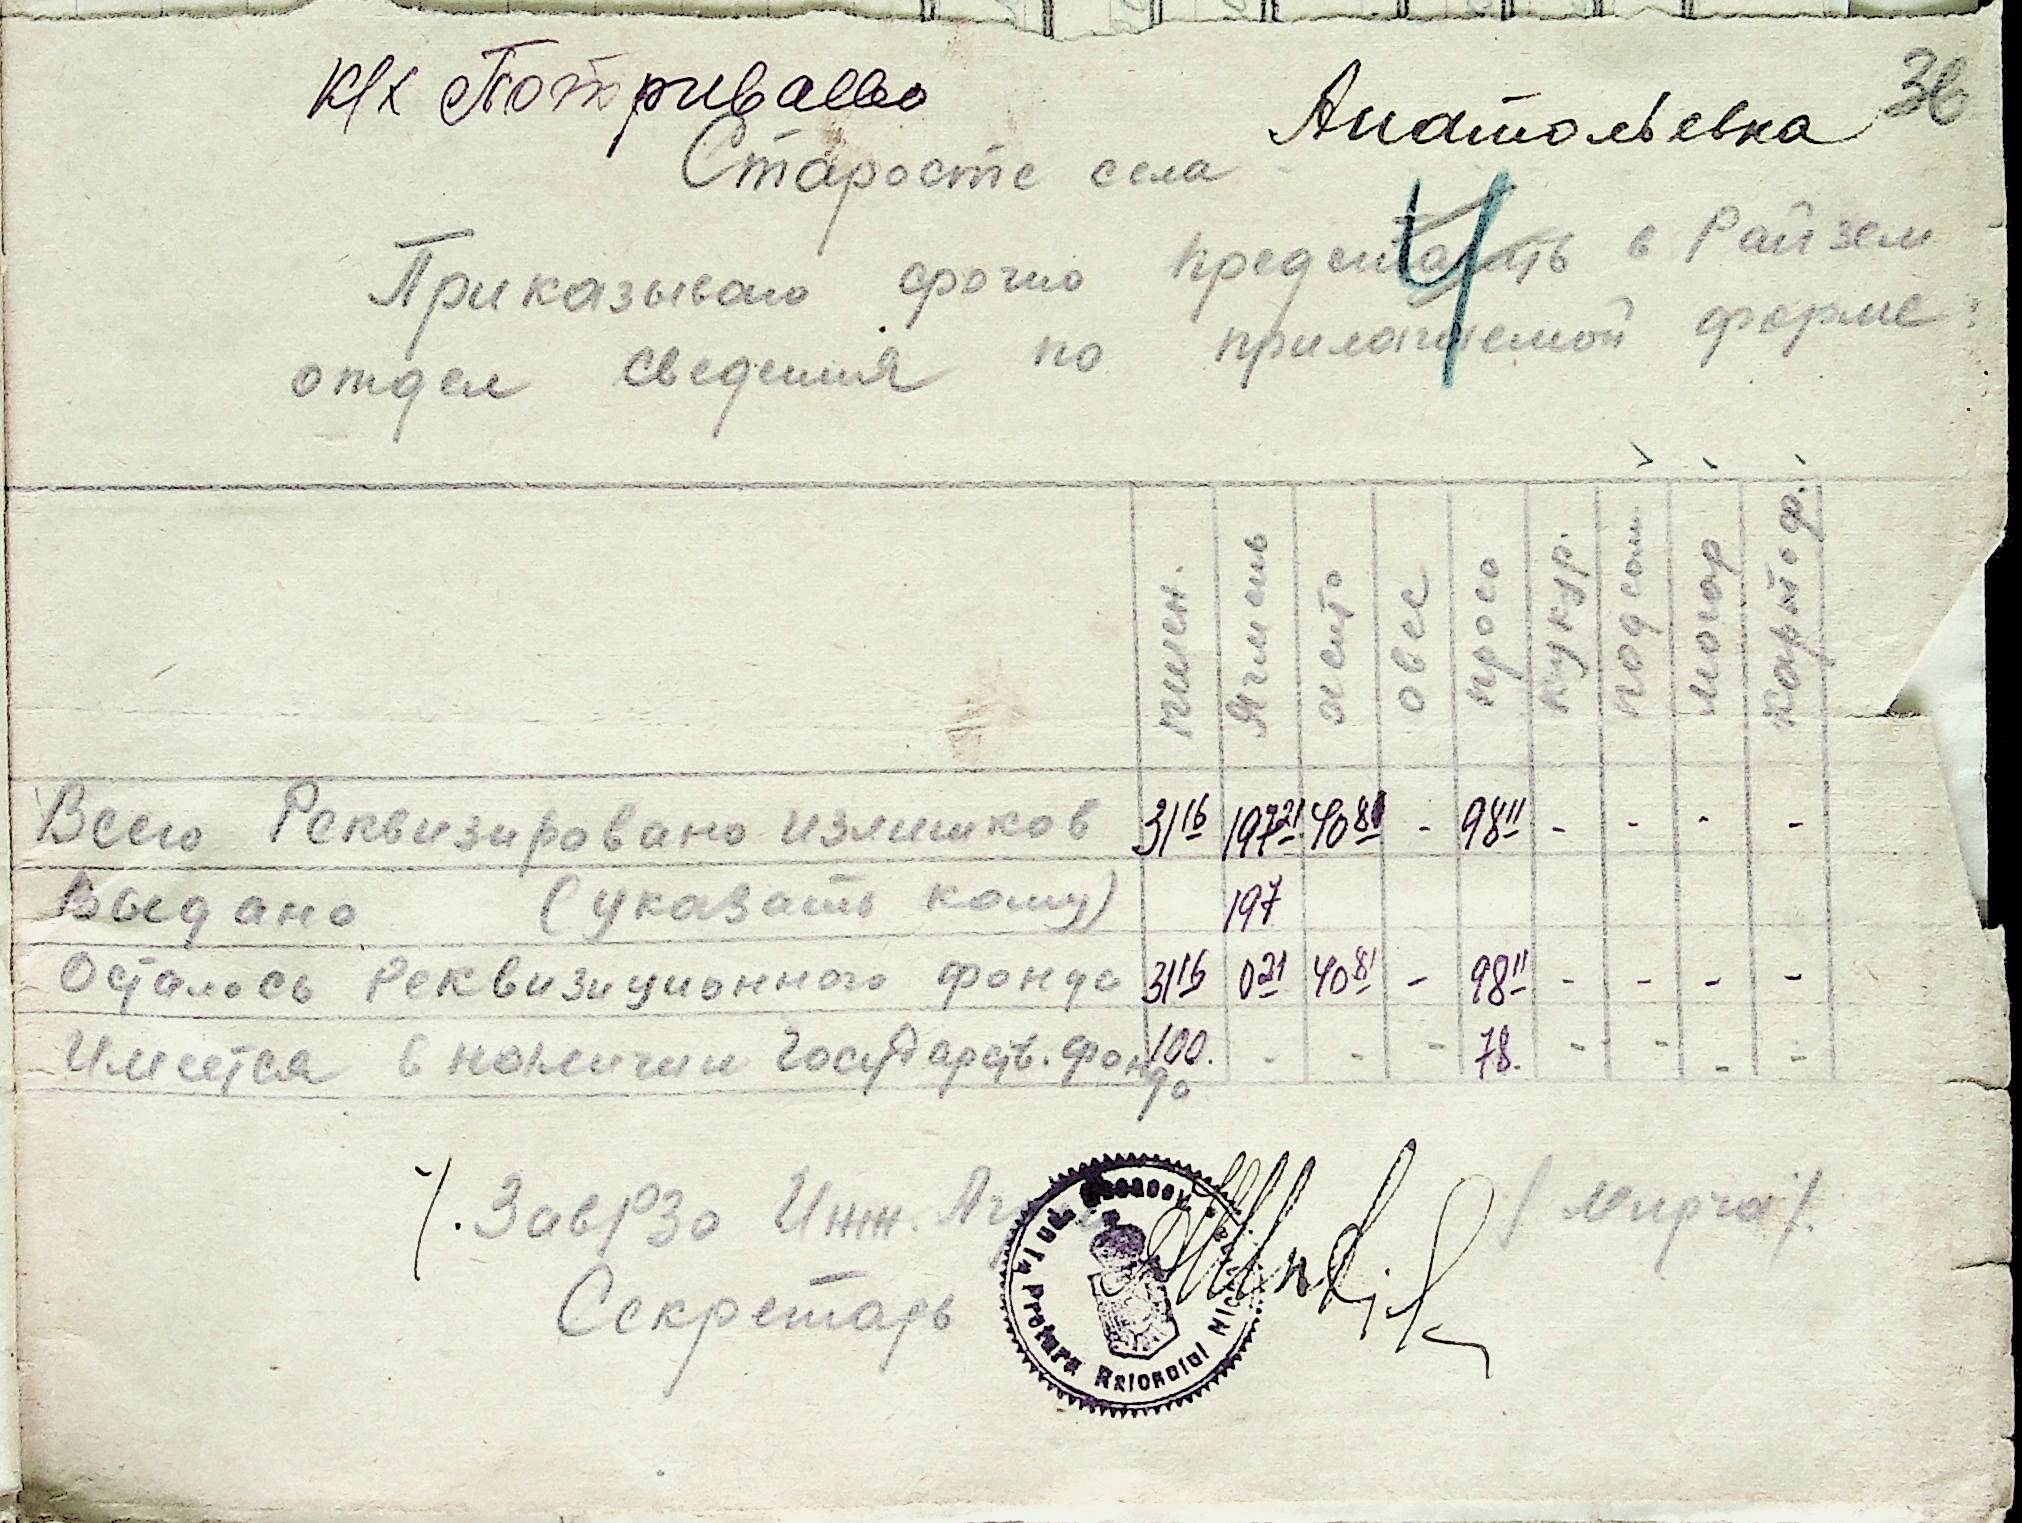 к/х Потриваево
Анатольевка 36
Старосте села
4
Приказываю срочно предста́вить в Райзем
отдел сведения по прилагаемой форме:
пшен. Ячмень жито овес просо кукур. подсол. могар картоф.
Всего Реквизировано излишков 31 16 197 21 40 81 - 98 11 - - - -
Выдано (указать кому) 197
Осталось Реквизиционного фонда 31 16 0 21 40 81 - 98 11 - - - -
Имеется в наличии Государств. фонда 100. - - - 78. - - - -
/. ЗавРЗо Инж. / Мирча /.
Секретарь
Jud.
Pretura Raionului